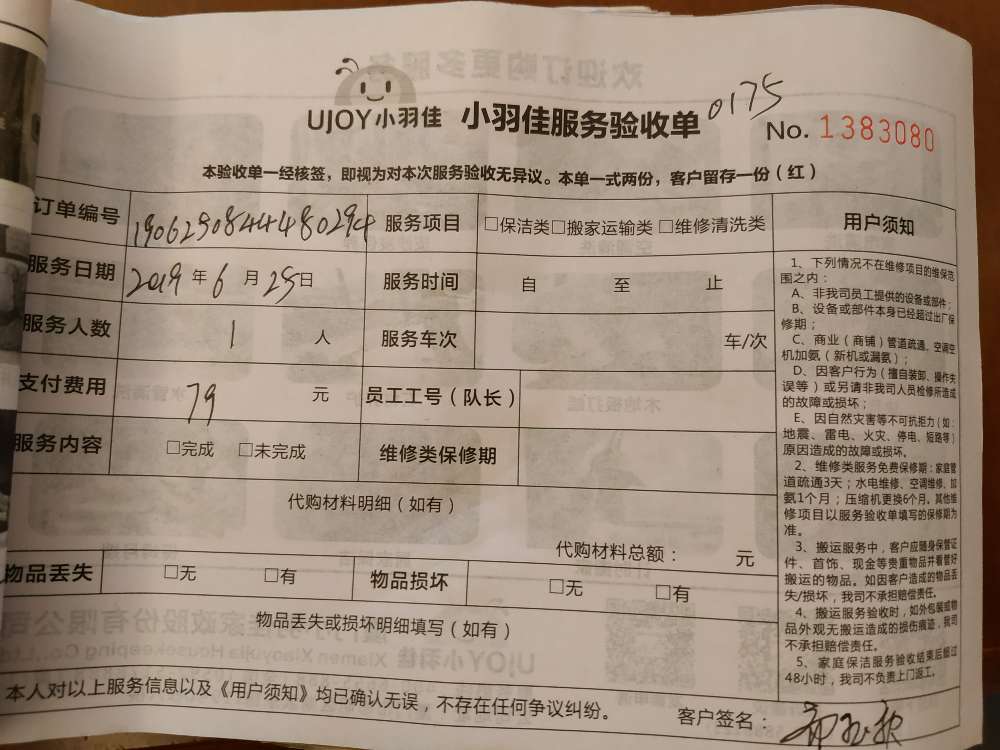 UJOY小羽佳 小羽佳服务验收单 0175 No. 1383080
本验收单一经核签，即视为对本次服务验收无异议。本单一式两份，客户留存一份（红）
订单编号 19062908444480294 服务项目 □保洁类□搬家运输类 □维修清洗类
服务日期 2019 年 6 月 25 日 服务时间 自 至 止
服务人数 1 人 服务车次 车/次
支付费用 79 元 员工工号（队长）
服务内容 □完成 □未完成 维修类保修期
代购材料明细（如有）
代购材料总额： 元
物品丢失 □无 □有 物品损坏 □无 □有
物品丢失或损坏明细填写（如有）
用户须知
1、下列情况不在维修项目的维保范
围之内：
A、非我司员工提供的设备或部件；
B、设备或部件本身已经超过出厂保
修期；
C、商业（商铺）管道疏通、空调空
机加氨（新机或漏氨）；
D、因客户行为（擅自装卸、操作失
误等）或另请非我司人员检修所造成
的故障或损坏；
E、因自然灾害等不可抗拒力（如：
地震、雷电、火灾、停电、短路等）
原因造成的故障或损坏。
2、维修类服务免费保修期：家庭管
道疏通3天；水电维修、空调维修、加
氨1个月；压缩机更换6个月。其他维
修项目以服务验收单填写的保修期为
准。
3、搬运服务中，客户应随身保管证
件、首饰、现金等贵重物品并看管好
搬运的物品。如因客户造成的物品丢
失/损坏，我司不承担赔偿责任。
4、搬运服务验收时，如外包装或物
品外观无搬运造成的损伤痕迹，我司
不承担赔偿责任。
5、家庭保洁服务验收结束后超过
48小时，我司不负责上门返工。
本人对以上服务信息以及《用户须知》均已确认无误，不存在任何争议纠纷。 客户签名：